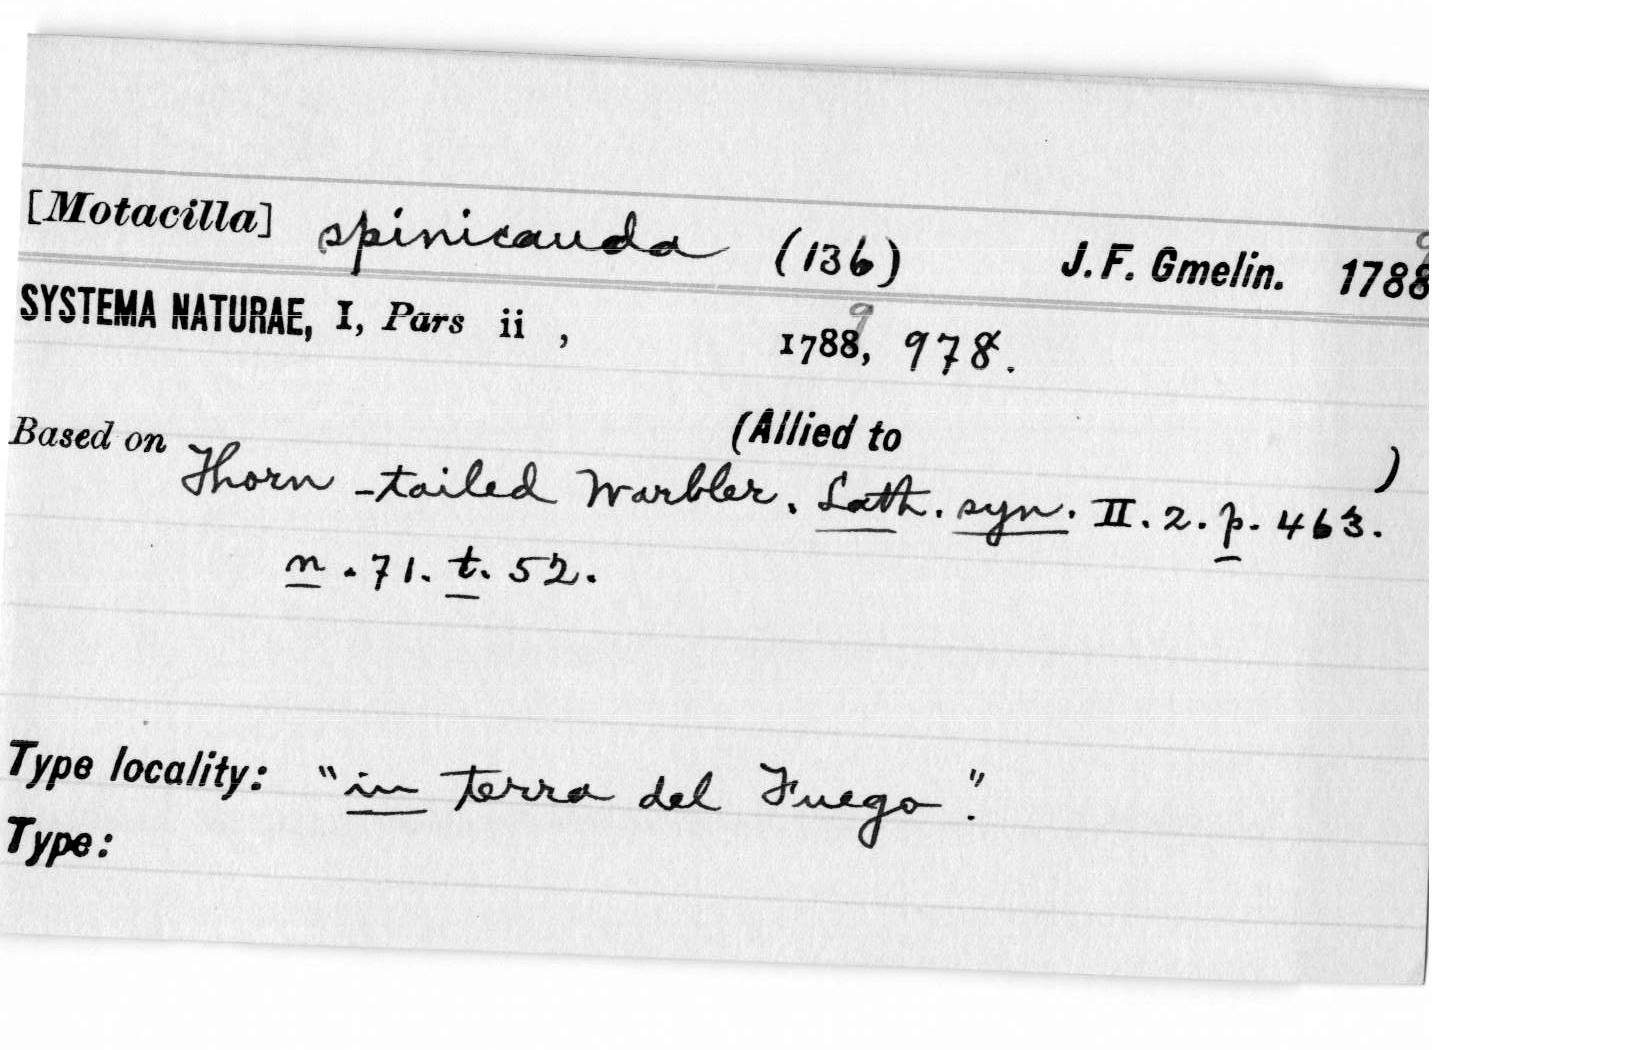 [Motacilla] spinicauda (136) J. F. Gmelin. 1788 9
SYSTEMA NATURAE, I, Pars ii , 1788, 9 978.
(Allied to )
Based on Thorn-tailed Warbler. Lath. syn. II. 2. p. 463.
n. 71. t. 52.
Type locality: "in terra del Fuego".
Type: